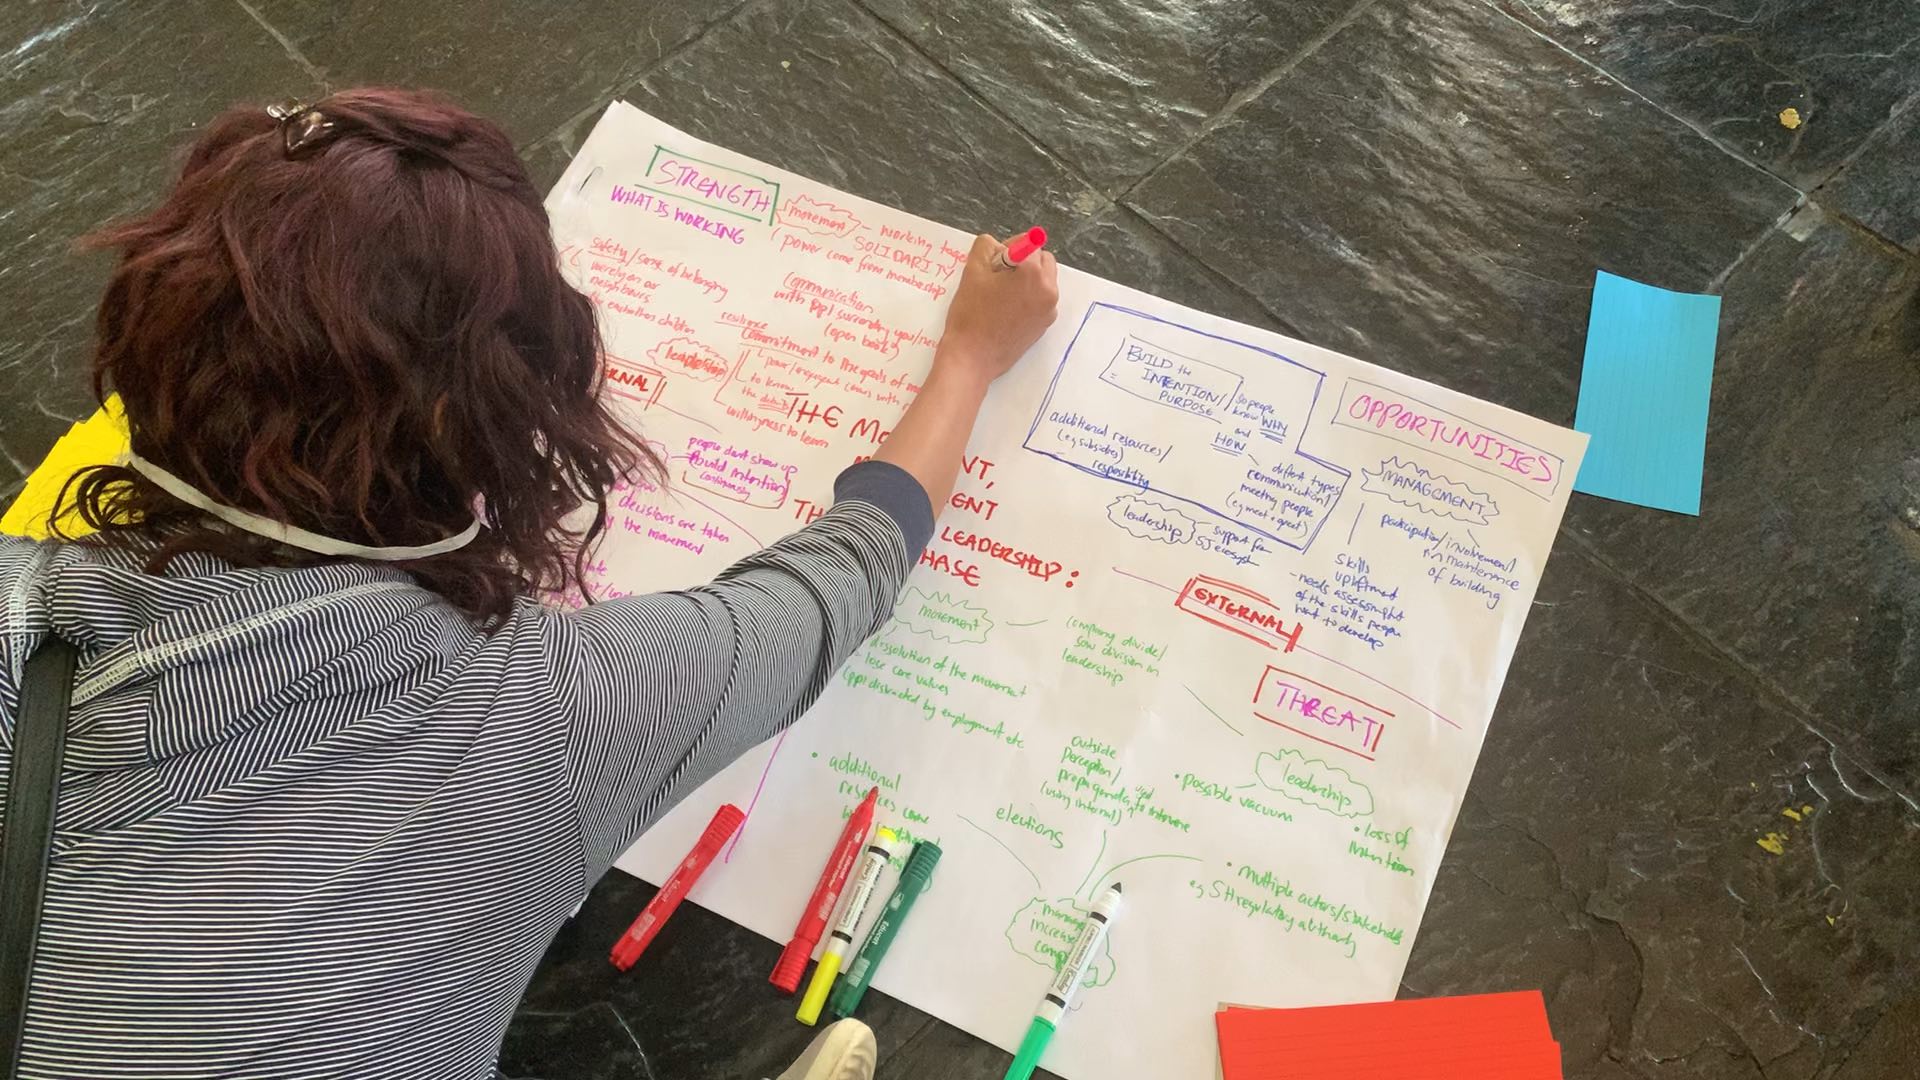 STRENGTH
WHAT IS WORKING
movement
working toge
SOLIDARITY
(power come from membership
safety/sense of belonging
we rely on our
neighbours
for eachothers children
Communication
with ppl surrounding you/
(open book)
resilience
Commitment to the goals of m
leadership
to know
the
willingness to learn
RNAL
THE MO
NT,
ENT
TH
LEADERSHIP:
HASE
people dont show up
build intention
continuously
decisions are taken
the movement
BUILD the
INTENTION/
PURPOSE
so people
know WHY
and
HOW
additional resources/
(eg subsidies)
responsibility
different types
communication/
meeting people
(eg meet + greet)
leadership
support for
SJ ecosystem
OPPORTUNITIES
MANAGEMENT
participation/involvement/
in maintenance
of building
skills
upliftment
- needs assessment
of the skills people
want to develop
EXTERNAL
THREAT
movement
company divide/
sow division in
leadership
dissolution of the movement
lose core values
(ppl distracted by employment etc
• additional
come
outside
perception/
propaganda, used to intervene
(using internal)
elections
leadership
• possible vacuum
• loss of
intention
• multiple actors/stakeholders
eg SH regulatory authority
manage
increase
comp